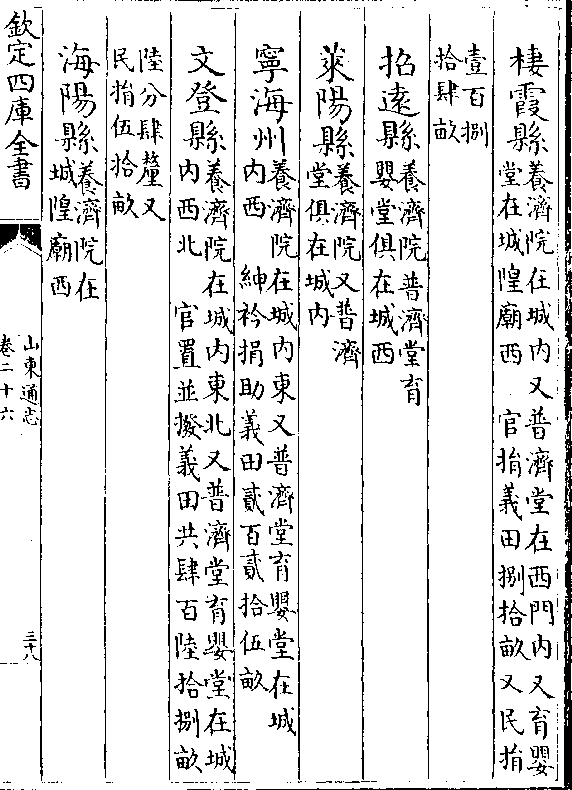 棲霞縣養濟院在城内又普濟堂在西門内又育嬰
堂在城隍廟西　官捐義田捌拾畝又民捐
壹百捌
拾肆畝
招遠縣養濟院普濟堂育
嬰堂俱在城西
萊陽縣養濟院又普濟
堂俱在城内
寧海州養濟院在城内東又普濟堂育嬰堂在城
内西　紳衿捐助義田貳百貳拾伍畝
文登縣養濟院在城内東北又普濟堂育嬰堂在城
内西北　官置並撥義田共肆百陸拾捌畝
陸分肆釐又
民捐伍拾畝
海陽縣養濟院在
城隍廟西
欽定四庫全書
山東通志
卷二十六
三十八